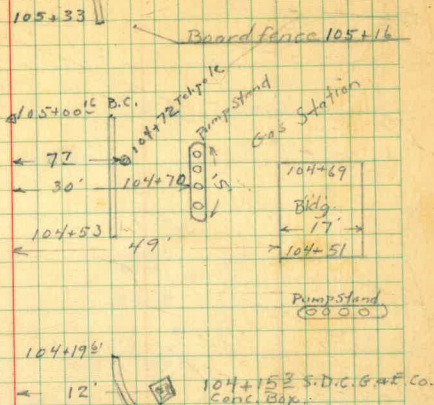 105+33
Board fence 105+16
105+00 16 B.C.
104+72 Tel. pole
Pump Stand
Gas Station
77
30'
104+70
15'
104+69
Bldg.
17'
104+51
104+53
49'
Pump Stand
104+19 6
12'
104+15 3 S.D.C.G.&E.Co.
Conc. Box.